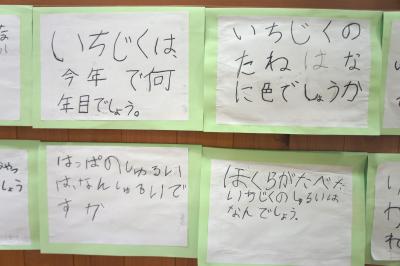 いちじくは、
今年で何
年目でしょう。
いちじくの
たねはな
に色でしょうか
はっぱのしゅるい
は、なんしゅるいで
すか
ぼくらがたべた
いちじくのしゅるいは
なんでしょう。